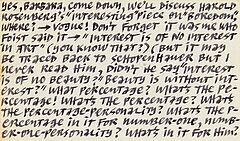 YES, BARBARA, COME DOWN, WE'LL DISCUSS HAROLD
ROSENBERG'S "INTERESTING" PIECE ON "BOREDOM."
WHERE? → VOGUE! DON'T FORGET IT WAS ME WHO
FOIST SAID IT → "INTEREST IS OF NO INTEREST
IN ART" (YOU KNOW THAT?) (BUT IT MAY
BE TRACED BACK TO SCHOPENHAUER BUT I
NEVER READ HIM, DIDN'T HE SAY "INTEREST
IS OF NO BEAUTY?" "BEAUTY IS WITHOUT INT-
EREST"? WHAT'S THE PERCENTAGE? WHATS THE PE-
RCENTAGE! WHATS THE PERCENTAGE? WHATS
THE PERCENTAGE? WHATS THE PERCENTAGE?
WHATS THE PERCENTAGE-PERSONALITY? WHATS THE P-
ERCENTAGE IN IT FOR NUMBER-ONE, NUMB-
ER-ONE-PERSONALITY? WHATS IN IT FOR HIM?